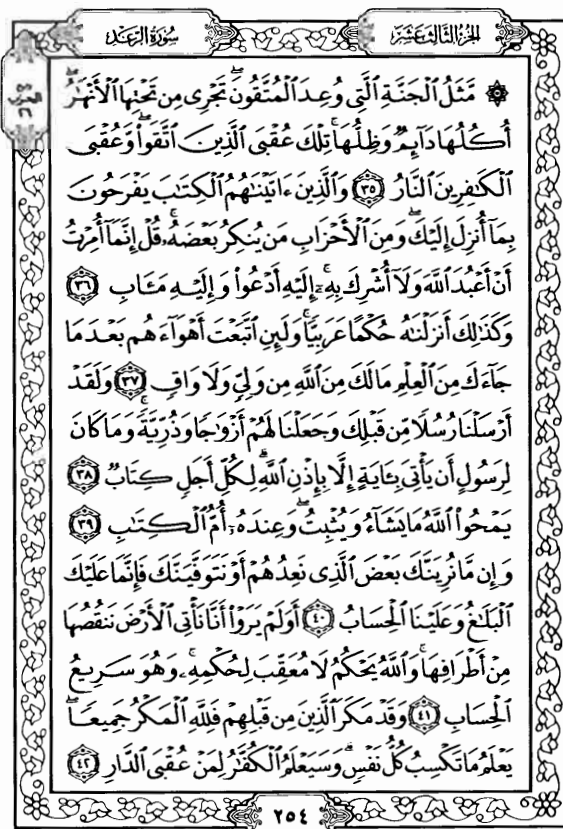 سُورَةُ الرَّعْدِ
الجُزْءُ الثَّالِثَ عَشَرَ
۞ مَّثَلُ ٱلْجَنَّةِ ٱلَّتِى وُعِدَ ٱلْمُتَّقُونَ ۖ تَجْرِى مِن تَحْتِهَا ٱلْأَنْهَٰرُ ۖ
أُكُلُهَا دَآئِمٌ وَظِلُّهَا ۚ تِلْكَ عُقْبَى ٱلَّذِينَ ٱتَّقَوا۟ ۖ وَّعُقْبَى
ٱلْكَٰفِرِينَ ٱلنَّارُ ٣٥ وَٱلَّذِينَ ءَاتَيْنَٰهُمُ ٱلْكِتَٰبَ يَفْرَحُونَ
بِمَآ أُنزِلَ إِلَيْكَ ۖ وَمِنَ ٱلْأَحْزَابِ مَن يُنكِرُ بَعْضَهُۥ ۚ قُلْ إِنَّمَآ أُمِرْتُ
أَنْ أَعْبُدَ ٱللَّهَ وَلَآ أُشْرِكَ بِهِۦٓ ۚ إِلَيْهِ أَدْعُوا۟ وَإِلَيْهِ مَـَٔابِ ٣٦
وَكَذَٰلِكَ أَنزَلْنَٰهُ حُكْمًا عَرَبِيًّا ۚ وَلَئِنِ ٱتَّبَعْتَ أَهْوَآءَهُم بَعْدَمَا
جَآءَكَ مِنَ ٱلْعِلْمِ مَا لَكَ مِنَ ٱللَّهِ مِن وَلِىٍّ وَلَا وَاقٍ ٣٧ وَلَقَدْ
أَرْسَلْنَا رُسُلًا مِّن قَبْلِكَ وَجَعَلْنَا لَهُمْ أَزْوَٰجًا وَذُرِّيَّةً ۚ وَمَا كَانَ
لِرَسُولٍ أَن يَأْتِىَ بِـَٔايَةٍ إِلَّا بِإِذْنِ ٱللَّهِ ۗ لِكُلِّ أَجَلٍ كِتَابٌ ٣٨
يَمْحُوا۟ ٱللَّهُ مَا يَشَآءُ وَيُثْبِتُ ۖ وَعِندَهُۥٓ أُمُّ ٱلْكِتَٰبِ ٣٩
وَإِن مَّا نُرِيَنَّكَ بَعْضَ ٱلَّذِى نَعِدُهُمْ أَوْ نَتَوَفَّيَنَّكَ فَإِنَّمَا عَلَيْكَ
ٱلْبَلَٰغُ وَعَلَيْنَا ٱلْحِسَابُ ٤٠ أَوَلَمْ يَرَوْا۟ أَنَّا نَأْتِى ٱلْأَرْضَ نَنقُصُهَا
مِنْ أَطْرَافِهَا ۚ وَٱللَّهُ يَحْكُمُ لَا مُعَقِّبَ لِحُكْمِهِۦ ۚ وَهُوَ سَرِيعُ
ٱلْحِسَابِ ٤١ وَقَدْ مَكَرَ ٱلَّذِينَ مِن قَبْلِهِمْ فَلِلَّهِ ٱلْمَكْرُ جَمِيعًا ۖ
يَعْلَمُ مَا تَكْسِبُ كُلُّ نَفْسٍ ۗ وَسَيَعْلَمُ ٱلْكُفَّٰرُ لِمَنْ عُقْبَى ٱلدَّارِ ٤٢
٢٥٤